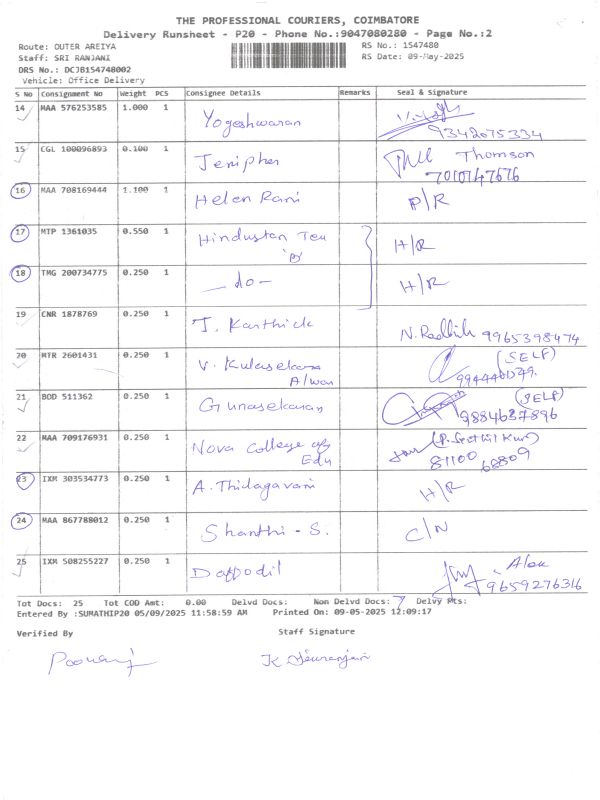 THE PROFESSIONAL COURIERS, COIMBATORE
Delivery Runsheet - P20 - Phone No.:9047080280 - Page No.:2
Route: OUTER AREIYA RS No.: 1547480
Staff: SRI RANJANI RS Date: 09-May-2025
DRS No.: DCJB154748002
Vehicle: Office Delivery
S No Consignment No Weight PCS Consignee Details Remarks Seal & Signature
14 MAA 576253585 1.000 1 Yogeshwaran 9342075334
15 CGL 100096893 0.100 1 Jenipher Thomson
7010747676
16 MAA 708169444 1.100 1 Helen Rani P/R
17 MTP 1361035 0.550 1 Hindustan H/R
18 TMG 200734775 0.250 1 - do - H/R
19 CNR 1878769 0.250 1 T. Karthick 9965398474
20 MTR 2601431 0.250 1 V. Kulasekara (SELF)
Alwar
21 BOD 511362 0.250 1 Gunasekaran (SELF)
9884637896
22 MAA 709176931 0.250 1 Nova College of
Edu 81100 68809
23 IXM 303534773 0.250 1 A. Thilagavani H/R
24 MAA 867788012 0.250 1 Shanthi - S. C/N
25 IXM 508255227 0.250 1 Daffodil 9659276316
Tot Docs: 25 Tot COD Amt: 0.00 Delvd Docs: Non Delvd Docs: 7 Delvy Pts:
Entered By :SUMATHIP20 05/09/2025 11:58:59 AM Printed On: 09-05-2025 12:09:17
Verified By Staff Signature